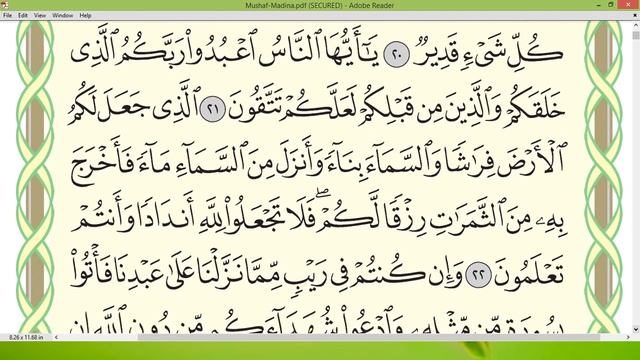 Mushaf-Madina.pdf (SECURED) - Adobe Reader
File Edit View Window Help
كُلِّ شَىْءٍ قَدِيرٌ ٢٠ يَٰٓأَيُّهَا ٱلنَّاسُ ٱعْبُدُوا۟ رَبَّكُمُ ٱلَّذِى
خَلَقَكُمْ وَٱلَّذِينَ مِن قَبْلِكُمْ لَعَلَّكُمْ تَتَّقُونَ ٢١ ٱلَّذِى جَعَلَ لَكُمُ
ٱلْأَرْضَ فِرَٰشًا وَٱلسَّمَآءَ بِنَآءً وَأَنزَلَ مِنَ ٱلسَّمَآءِ مَآءً فَأَخْرَجَ
بِهِۦ مِنَ ٱلثَّمَرَٰتِ رِزْقًا لَّكُمْ ۖ فَلَا تَجْعَلُوا۟ لِلَّهِ أَندَادًا وَأَنتُمْ
تَعْلَمُونَ ٢٢ وَإِن كُنتُمْ فِى رَيْبٍ مِّمَّا نَزَّلْنَا عَلَىٰ عَبْدِنَا فَأْتُوا۟
بِسُورَةٍ مِّن مِّثْلِهِۦ وَٱدْعُوا۟ شُهَدَآءَكُم مِّن دُونِ ٱللَّهِ إِن
8.26 x 11.68 in